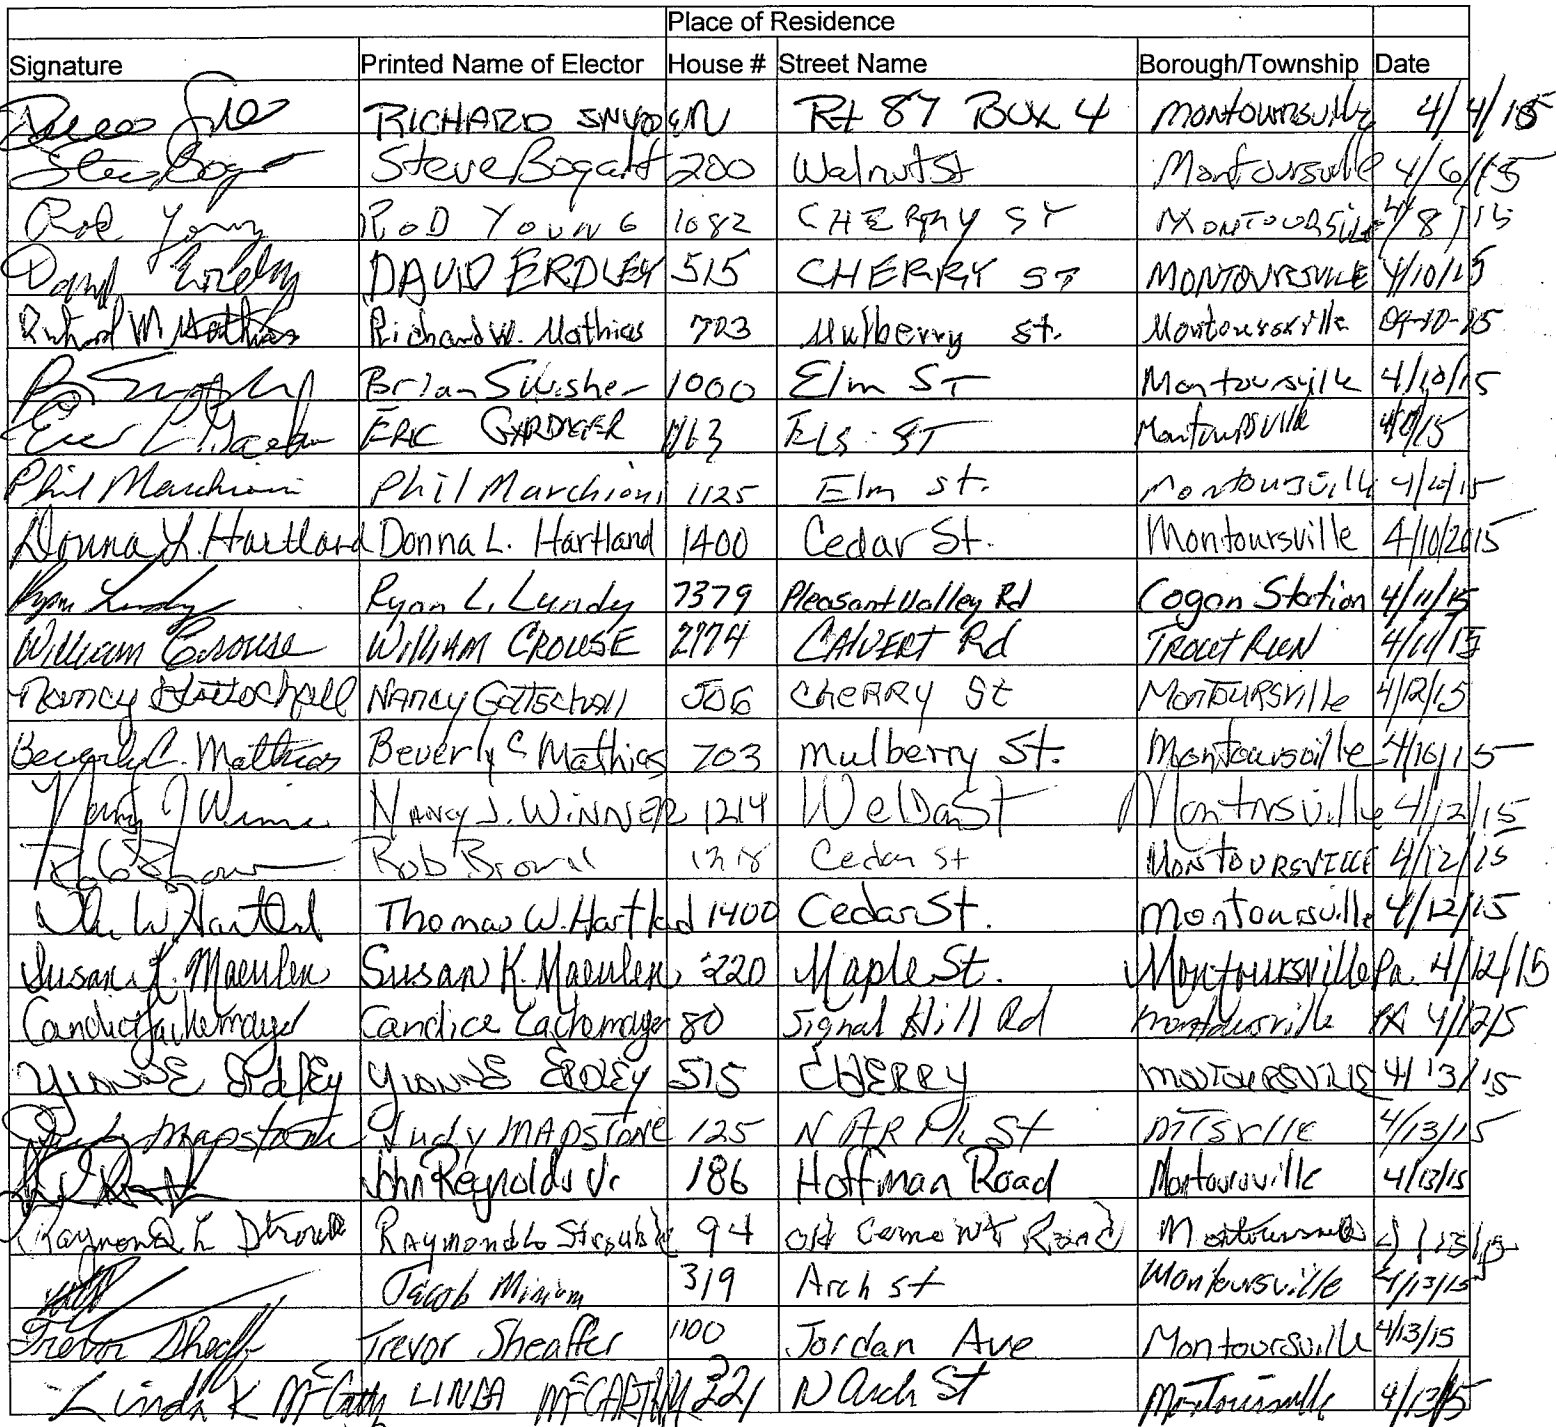 Place of Residence
Signature Printed Name of Elector House # Street Name Borough/Township Date
RICHARD SNYDER Rt 87 BOX 4 Montoursville 4/4/15
Steve Bogart 200 Walnut St Montoursville 4/6/15
Rod Young ROD YOUNG 1082 CHERRY ST MONTOURSVILLE 4/8/15
David Erdley DAVID ERDLEY 515 CHERRY ST MONTOURSVILLE 4/10/15
Richard W Mathias Richard W. Mathias 703 Mulberry St. Montoursville 04-10-15
Brian Swisher 1000 Elm ST Montoursville 4/10/15
ERIC GARDNER ST Montoursville 15
Phil Marchioni Phil Marchioni 1125 Elm St. Montoursville 4/10/15
Donna L. Hartland Donna L. Hartland 1400 Cedar St. Montoursville 4/10/2015
Ryan Lundy Ryan L. Lundy 7379 Pleasant Valley Rd Cogan Station 4/11/15
William Crouse WILLIAM CROUSE 2774 CALVERT Rd TROUT RUN 4/11/15
Nancy Gottschall NANCY GOTTSCHALL 506 CHERRY St MONTOURSVILLE 4/12/15
Beverly C. Mathias Beverly C Mathias 703 Mulberry St. Montoursville 4/10/15
Nancy J Winner NANCY J. WINNER 1214 Weldon St Montrsville 4/12/15
Rob Brown Rob Brown 1218 Cedar St MONTOURSVILLE 4/12/15
W. Hartland Thomas W. Hartland 1400 Cedar St. Montoursville 4/12/15
Susan K. Maeulen Susan K. Maeulen 220 Maple St. Montoursville Pa. 4/12/15
Candice Lackemayer Candice Lackemayer 80 Signal Hill Rd Montoursville PA 4/12/15
YVONNE ERDLEY YVONNE ERDLEY 515 CHERRY MONTOURSVILLE 4/13/15
Judy Mapstone Judy MAPSTONE 125 N St 4/13/15
John Reynolds Jr 186 Hoffman Road Montoursville 4/13/15
Raymond L Strouble Raymond L Strouble 94 Old Cement Road Montoursville 4/13/15
Jacob Minium 319 Arch St Montoursville 4/13/15
Trevor Sheaffer Trevor Sheaffer 1100 Jordan Ave Montoursville 4/13/15
Linda K McCarthy LINDA McCARTHY 221 N Arch St Montoursville 4/13/15